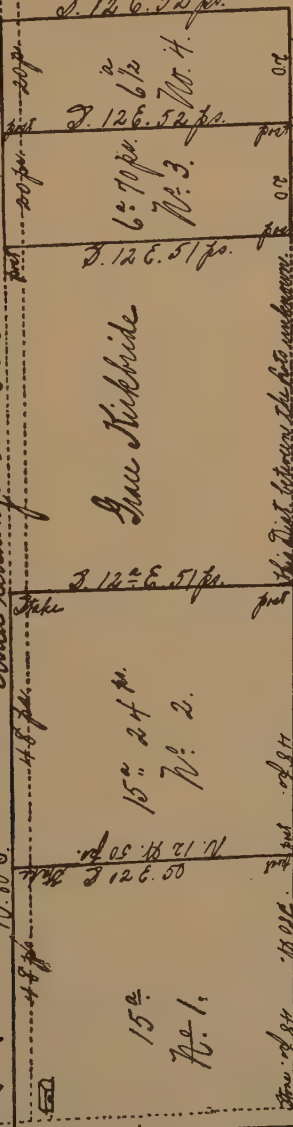 S. 12 E. 52 ps.
20 p.
6½ a
No. 4.
20
post
S. 12 E. 52 ps.
post
20 ps.
6 a 70 ps.
No. 3.
20
post
S. 12 E. 51 ps.
post
Grace Kirkbride
this Dist. between the lots unknown.
S. 12 E. 51 ps.
Stake
post
48 ps.
15 a 24 ps.
No. 2.
48 ps.
N. 12 W. 50 ps.
S 12 E. 50
post
48 ps
15 a
No. 1.
48 ps.
Stone